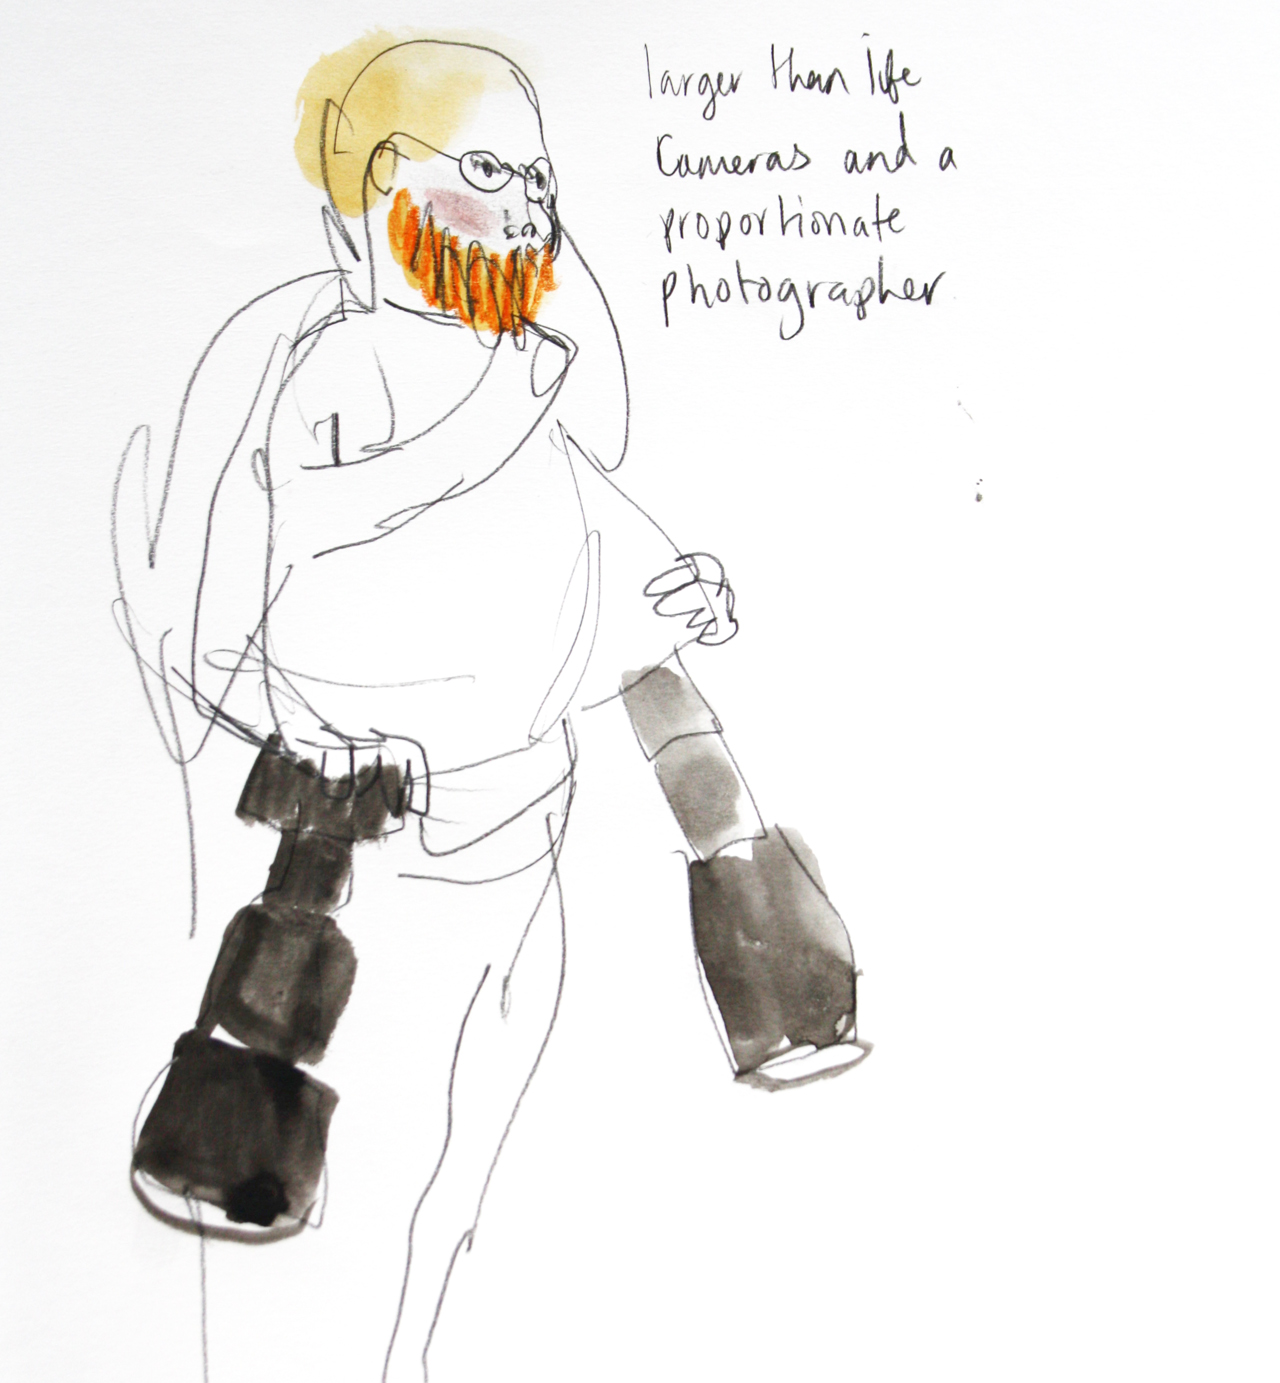 larger than life
Cameras and a
proportionate
photographer